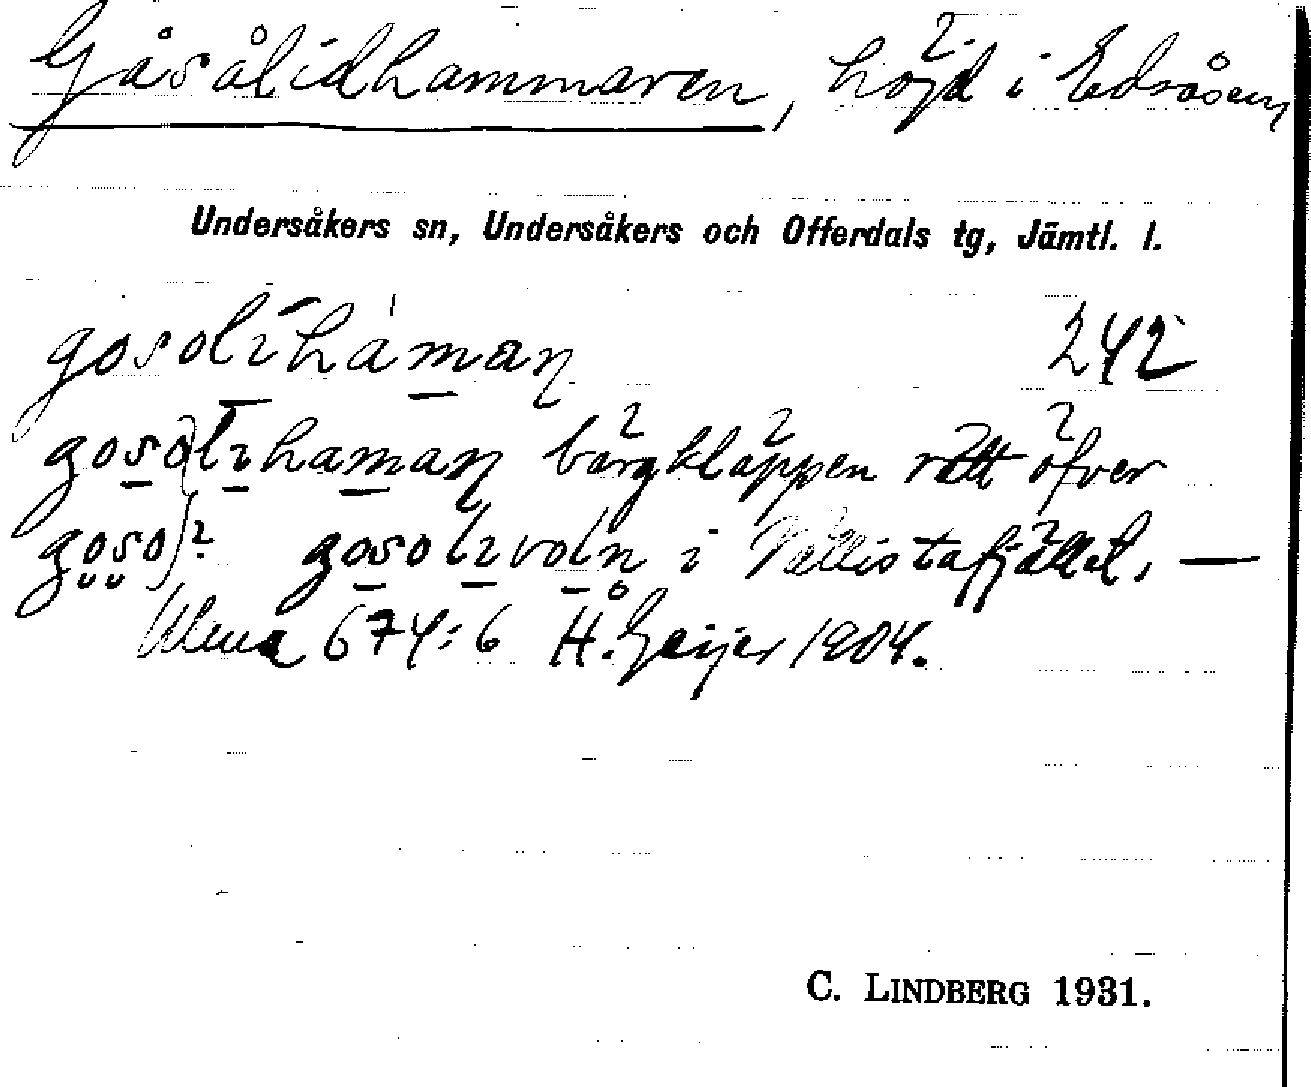 Gåsålidhammaren, höjd i Edsåsen,
Undersåkers sn, Undersåkers och Offerdals tg, Jämtl. l.
gosolihaman 242
gosolihaman bärgkläppen rätt öfver
goso)? gosolivoln i Vällistafjället, —
Ulma 674:6 H. Geijer 1904.
C. LINDBERG 1931.